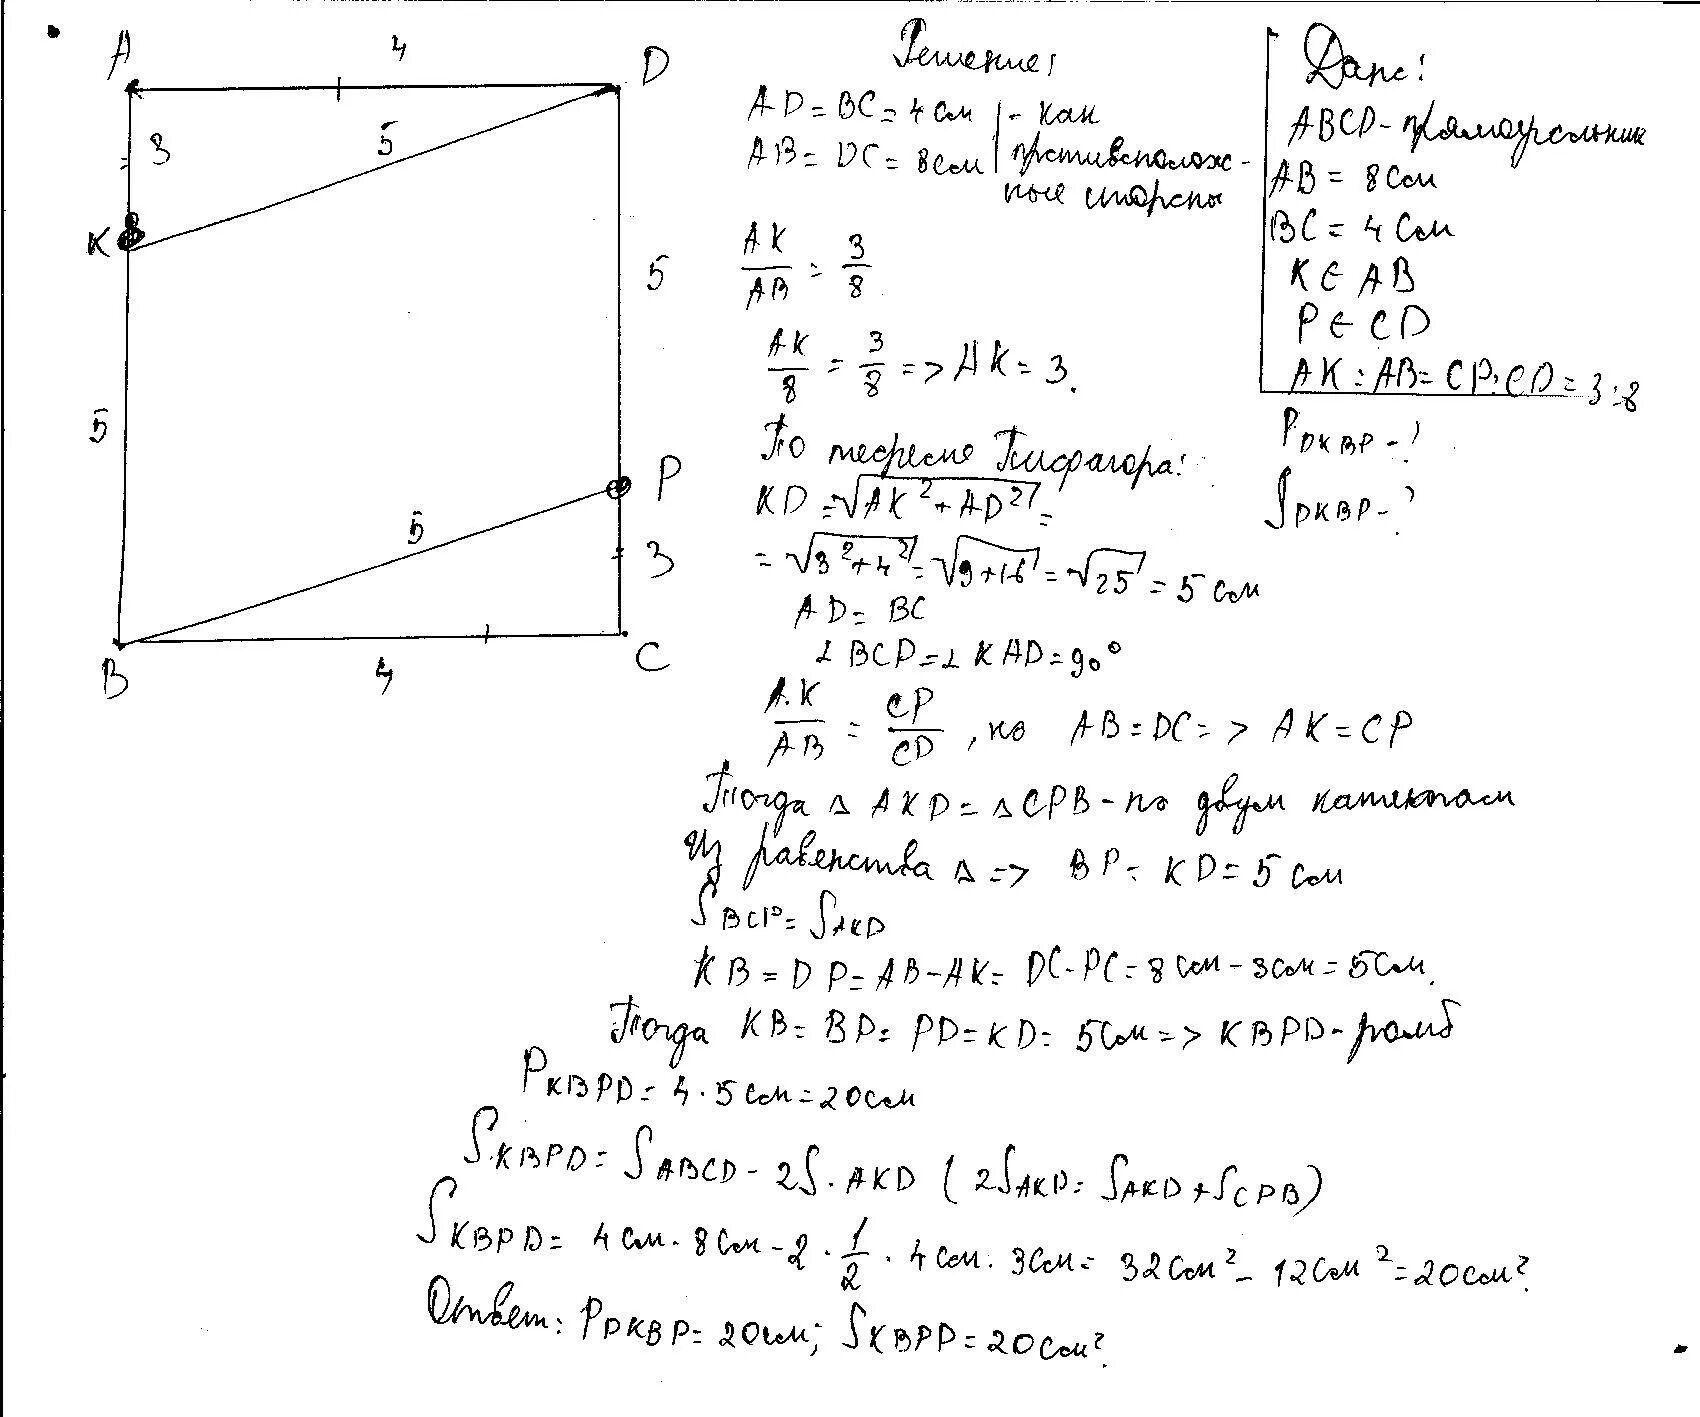 A 4 D
3 5
K
5
5
5 P
3
B 4 C
Решение:
AD = BC = 4 см | - как
AB = DC = 8 см | противополож-
ные стороны
AK/AB = 3/8
AK/8 = 3/8 => AK = 3.
По теореме Пифагора:
KD = √AK² + AD² =
= √3² + 4² = √9 + 16 = √25 = 5 см
AD = BC
∠BCD = ∠KAD = 90°
AK/AB = CP/CD, но AB = DC => AK = CP
Тогда Δ AKD = Δ CPB - по двум катетам
Из равенства Δ => BP = KD = 5 см
S BCP = S AKD
KB = DP = AB - AK = DC - PC = 8 см - 3 см = 5 см.
Тогда KB = BP = PD = KD = 5 см => KBPD - ромб
P KBPD = 4 · 5 см = 20 см
S KBPD = S ABCD - 2S · AKD ( 2S AKD = S AKD + S CPB )
S KBPD = 4 см · 8 см - 2 · 1/2 · 4 см · 3 см = 32 см² - 12 см² = 20 см²
Ответ: P DKBP = 20 см; S KBPD = 20 см².
Дано:
ABCD - прямоугольник
AB = 8 см
BC = 4 см
K ∈ AB
P ∈ CD
AK : AB = CP : CD = 3 : 8
P DKBP - ?
S DKBP - ?